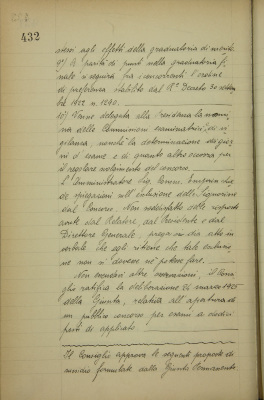 432
menti agli effetti della graduatoria di merito.
9°) A parità di punti nella graduatoria fi-
nale si seguirà fra i concorrenti l'ordine
di preferenza stabilito dal R° Decreto 30
1922 n. 1290.
10) Venne delegata alla Presidenza la nomi-
na delle Commissioni esaminatrici, di vi-
gilanza, nonchè la determinazione dei gior-
ni d'esame e di quanto altro occorra per
il regolare svolgimento del concorso.
L'Amministratore chie-
de spiegazioni sull'esclusione delle Signorine
dal Concorso. Non soddisfatto delle risposte
avute dal Relatore, dal Presidente e dal
Direttore Generale, prega sia dato atto in
verbale che egli ritiene che tale esclusio-
ne non si dovesse nè potesse fare.
Non essendovi altre osservazioni, il Consi-
glio ratifica la deliberazione 26 marzo 1925
della Giunta, relativa all'apertura di
un pubblico concorso per esami a
posti di applicato.
Il Consiglio approva le seguenti proposte di
sussidio formulate dalla Giunta Permanente